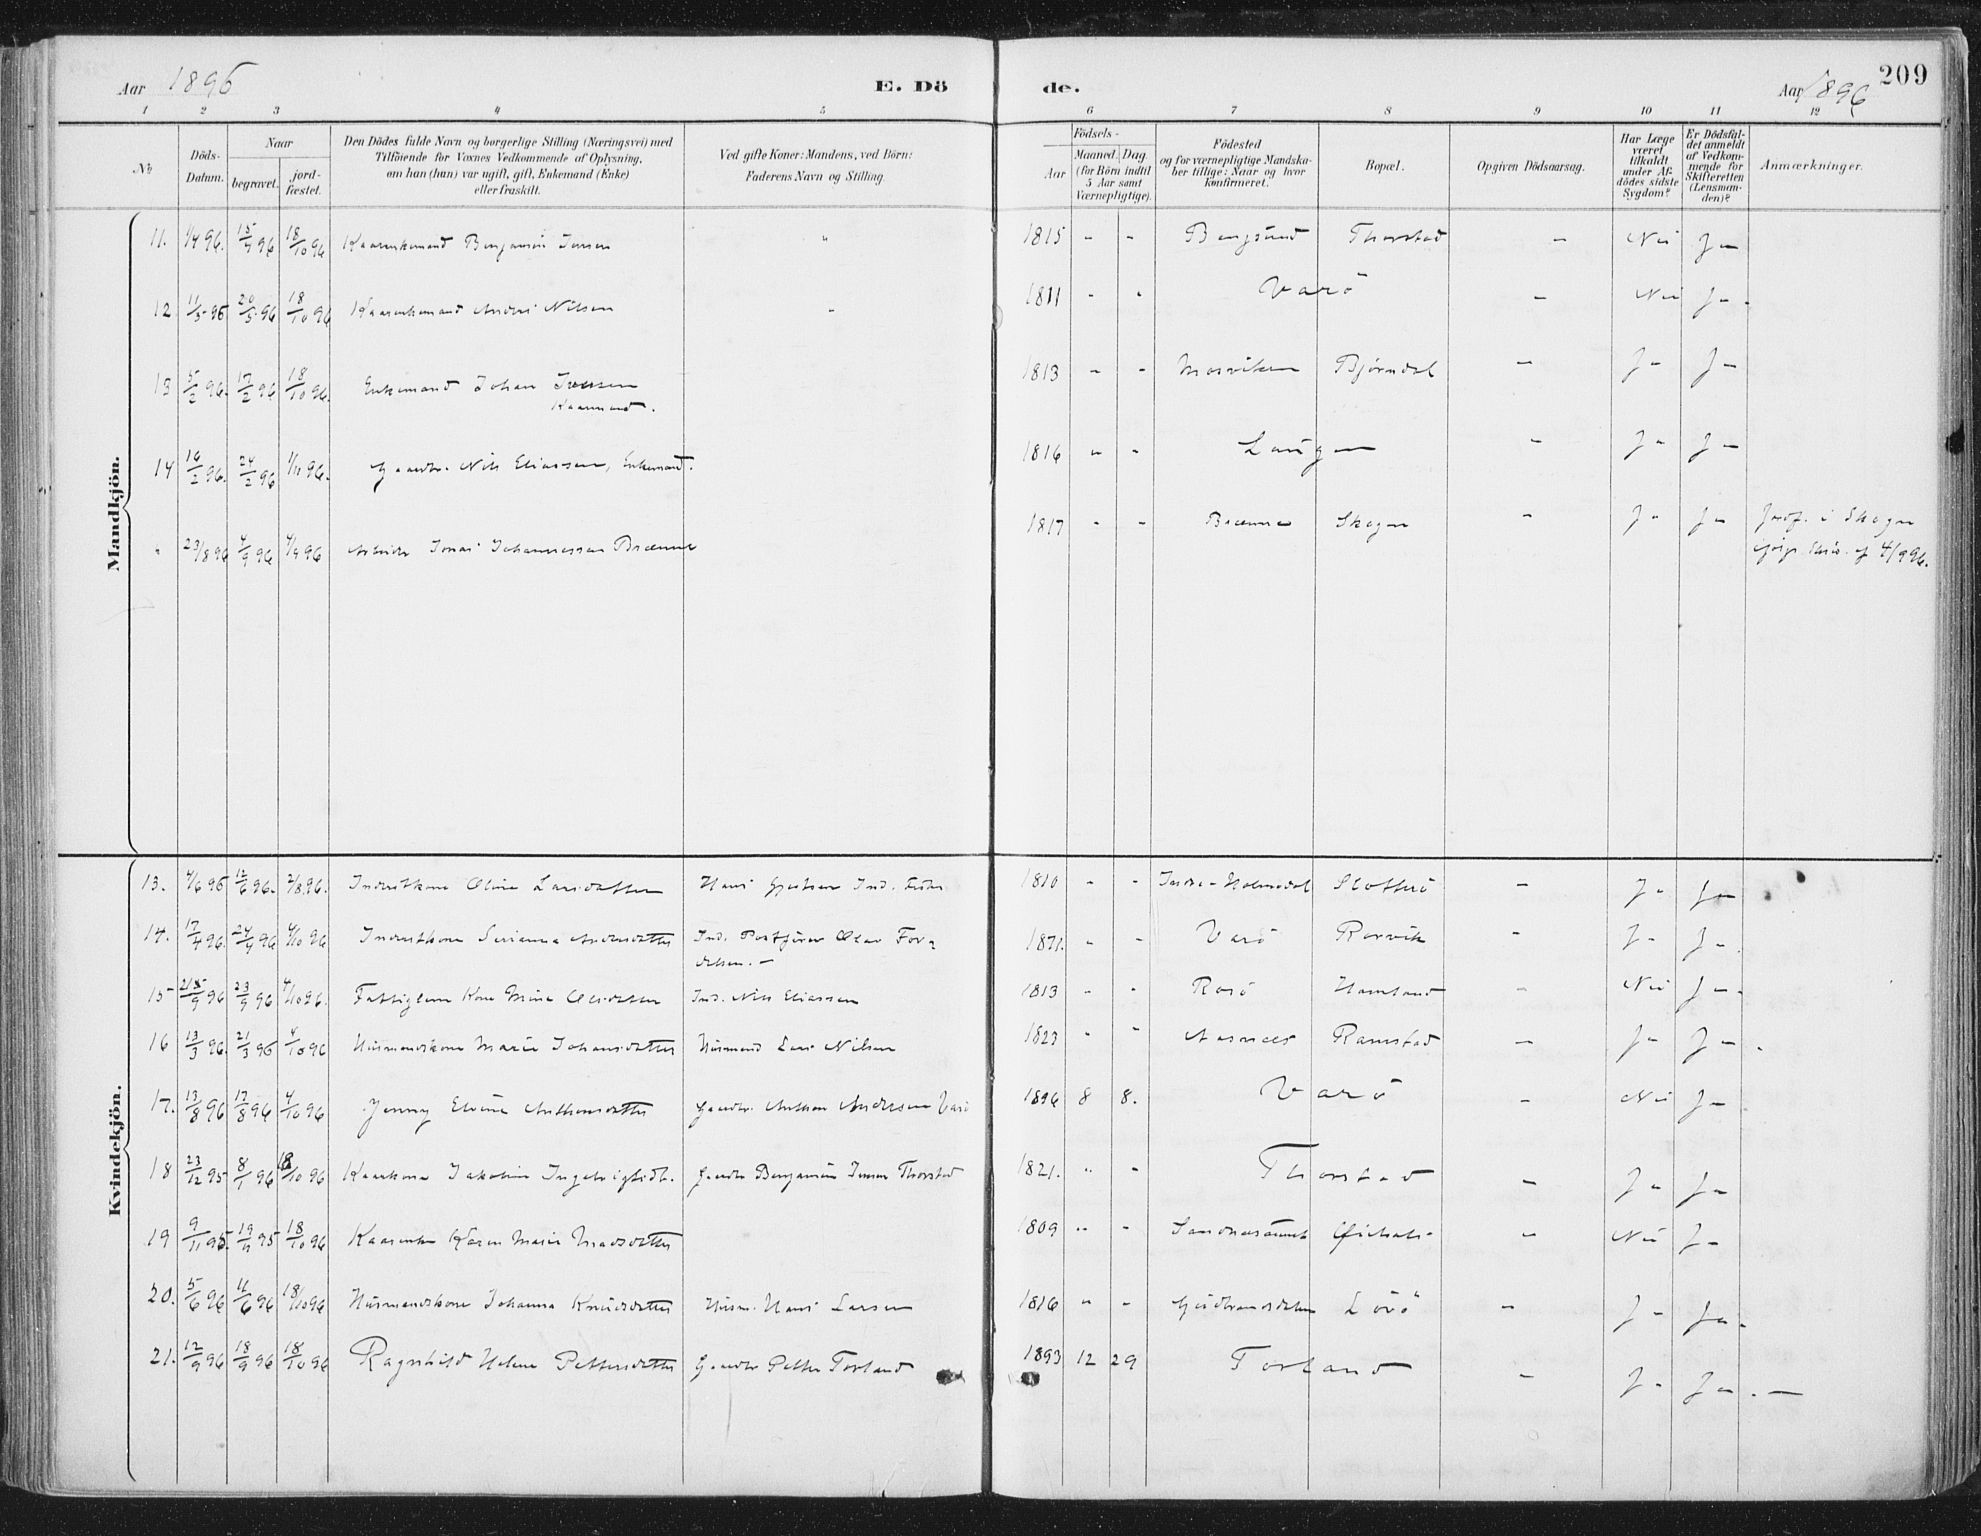 Aar 1896 E. Dö de. Aar 1896 209
1 2 3 4 5 6 7 8 9 10 11 12
No. Döds-Datum. Naar begravet. jord-fæstet. Den Dödes fulde Navn og borgerlige Stilling (Næringsvei) med Tilföiende for Voxnes Vedkommende af Oplysning, om han (hun) var ugift, gift, Enkemand (Enke) eller fraskilt. Ved gifte Koner: Mandens, ved Börn: Faderens Navn og Stilling. Födsels- Aar Maaned. Dag. (for Börn indtil 5 Aar samt Værnepligtige). Födested og for værnepligtige Mandskaber tillige: Naar og hvor konfirmeret. Bopæl. Opgiven Dödsaarsag. Har Læge været tilkaldt under Afdödes sidste Sygdom? Er Dödsfaldet anmeldt af Vedkommende for Skifteretten (Lensmanden)? Anmærkninger.
Mandkjön.
11. 1/4 96. 15/4 96 18/10 96 Kaarenkemand Benjamin Jensen " 1815 - - Bangsund Thorstad - Nei Ja
12 11/5 96 20/5 96 18/10 96 Kaarenkemand Anders Nilsen - 1811 - - Varö - Nei Ja -
13 5/2 96. 17/2 96 18/10 96. Enkemand Johan Iversen 1813 - - Mosviken Bjørndal - Ja Ja
Kaarmand.
14 16/2 96. 24/2 96 1/11 96. Gaardbr. Nils Eliassen, Enkemand. 1816 - - Laugen - Ja Ja
" 23/8 96 4/9 96 4/9 96 Arbeider Jonas Johannessen Brænne 1817 - - Brænne Skogn - Ja Ja Jordf. i Skogn
ifølge Skriv. af 4/9 96.
Kvindekjön.
13. 4/6 96 12/6 96. 2/8 96. Inderstkone Oline Larsdatter Hans 1810 - - Indre-Holmedal Slotterö - Ja Ja
14. 17/4 96. 24/4 96 4/10 96 Inderstkone Serianna Andersdatter Ind. Postfører Olav For-
delsen. - 1871. - - Varö Rorvik - Ja Ja.
15 96 23/9 96 4/10 96. Fattiglem Kone Mina Olsdatter Ind. Nils Eliassen 1813 - - Rosö Hamland - Nei Ja -
16 13/3 96. 21/3 96 4/10 96 Husmandskone Marie Johansdatter Husmand Lars Nilsen 1823 " - Aasnæs Ramstad - Ja Ja -
17. 13/8 96 17/8 96 4/10 96 Jenny Elvine Anthonsdatter Gaardbr. Anthon Andersen Varö 1896 8 8. Varö - Nei Ja
18 23/12 95 8/1 96 18/10 96 Kaarkone Jakobine Ingebrigtsdt. Gaardbr Benjamin Jensen Thorstad 1821. " - Thorstad - Ja Ja
19 9/11 95. 19/11 95 18/10 96 Kaarenke Karen Marie Madsdatter 1809 - - - Nei Ja
20. 5/6 96 11/6 96 18/10 96 Husmandskone Johanna Knudsdatter Husm. Hans Larsen 1816 " - Gudbrandsdalen Lövö - Ja Ja -
21. 12/9 96 18/9 96 18/10 96 Ragnhild Helene Pettersdatter Gaardbr Petter Torland 1893 12 29 Torland - Ja Ja - -